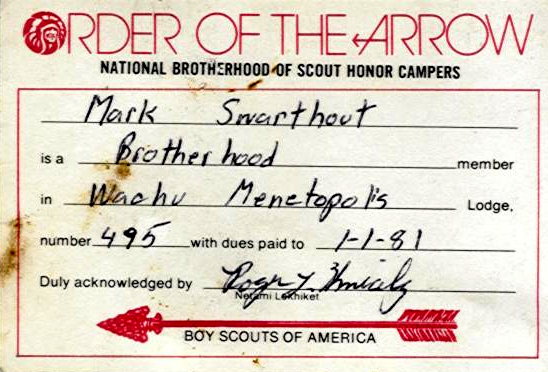 ORDER OF THE ARROW
NATIONAL BROTHERHOOD OF SCOUT HONOR CAMPERS
Mark Swarthout
is a Brotherhood member
in Wachu Menetopolis Lodge,
number 495 with dues paid to 1-1-81
Duly acknowledged by Roger L.
Netami Lekhiket
BOY SCOUTS OF AMERICA